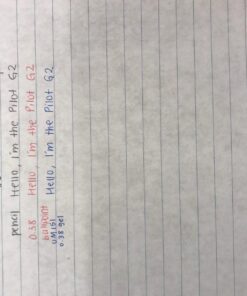 pencil Hello, I'm the Pilot G2
0.38 Hello, I'm the Pilot G2
ballpoint Hello, I'm the Pilot G2
UM 151
0.38 gel